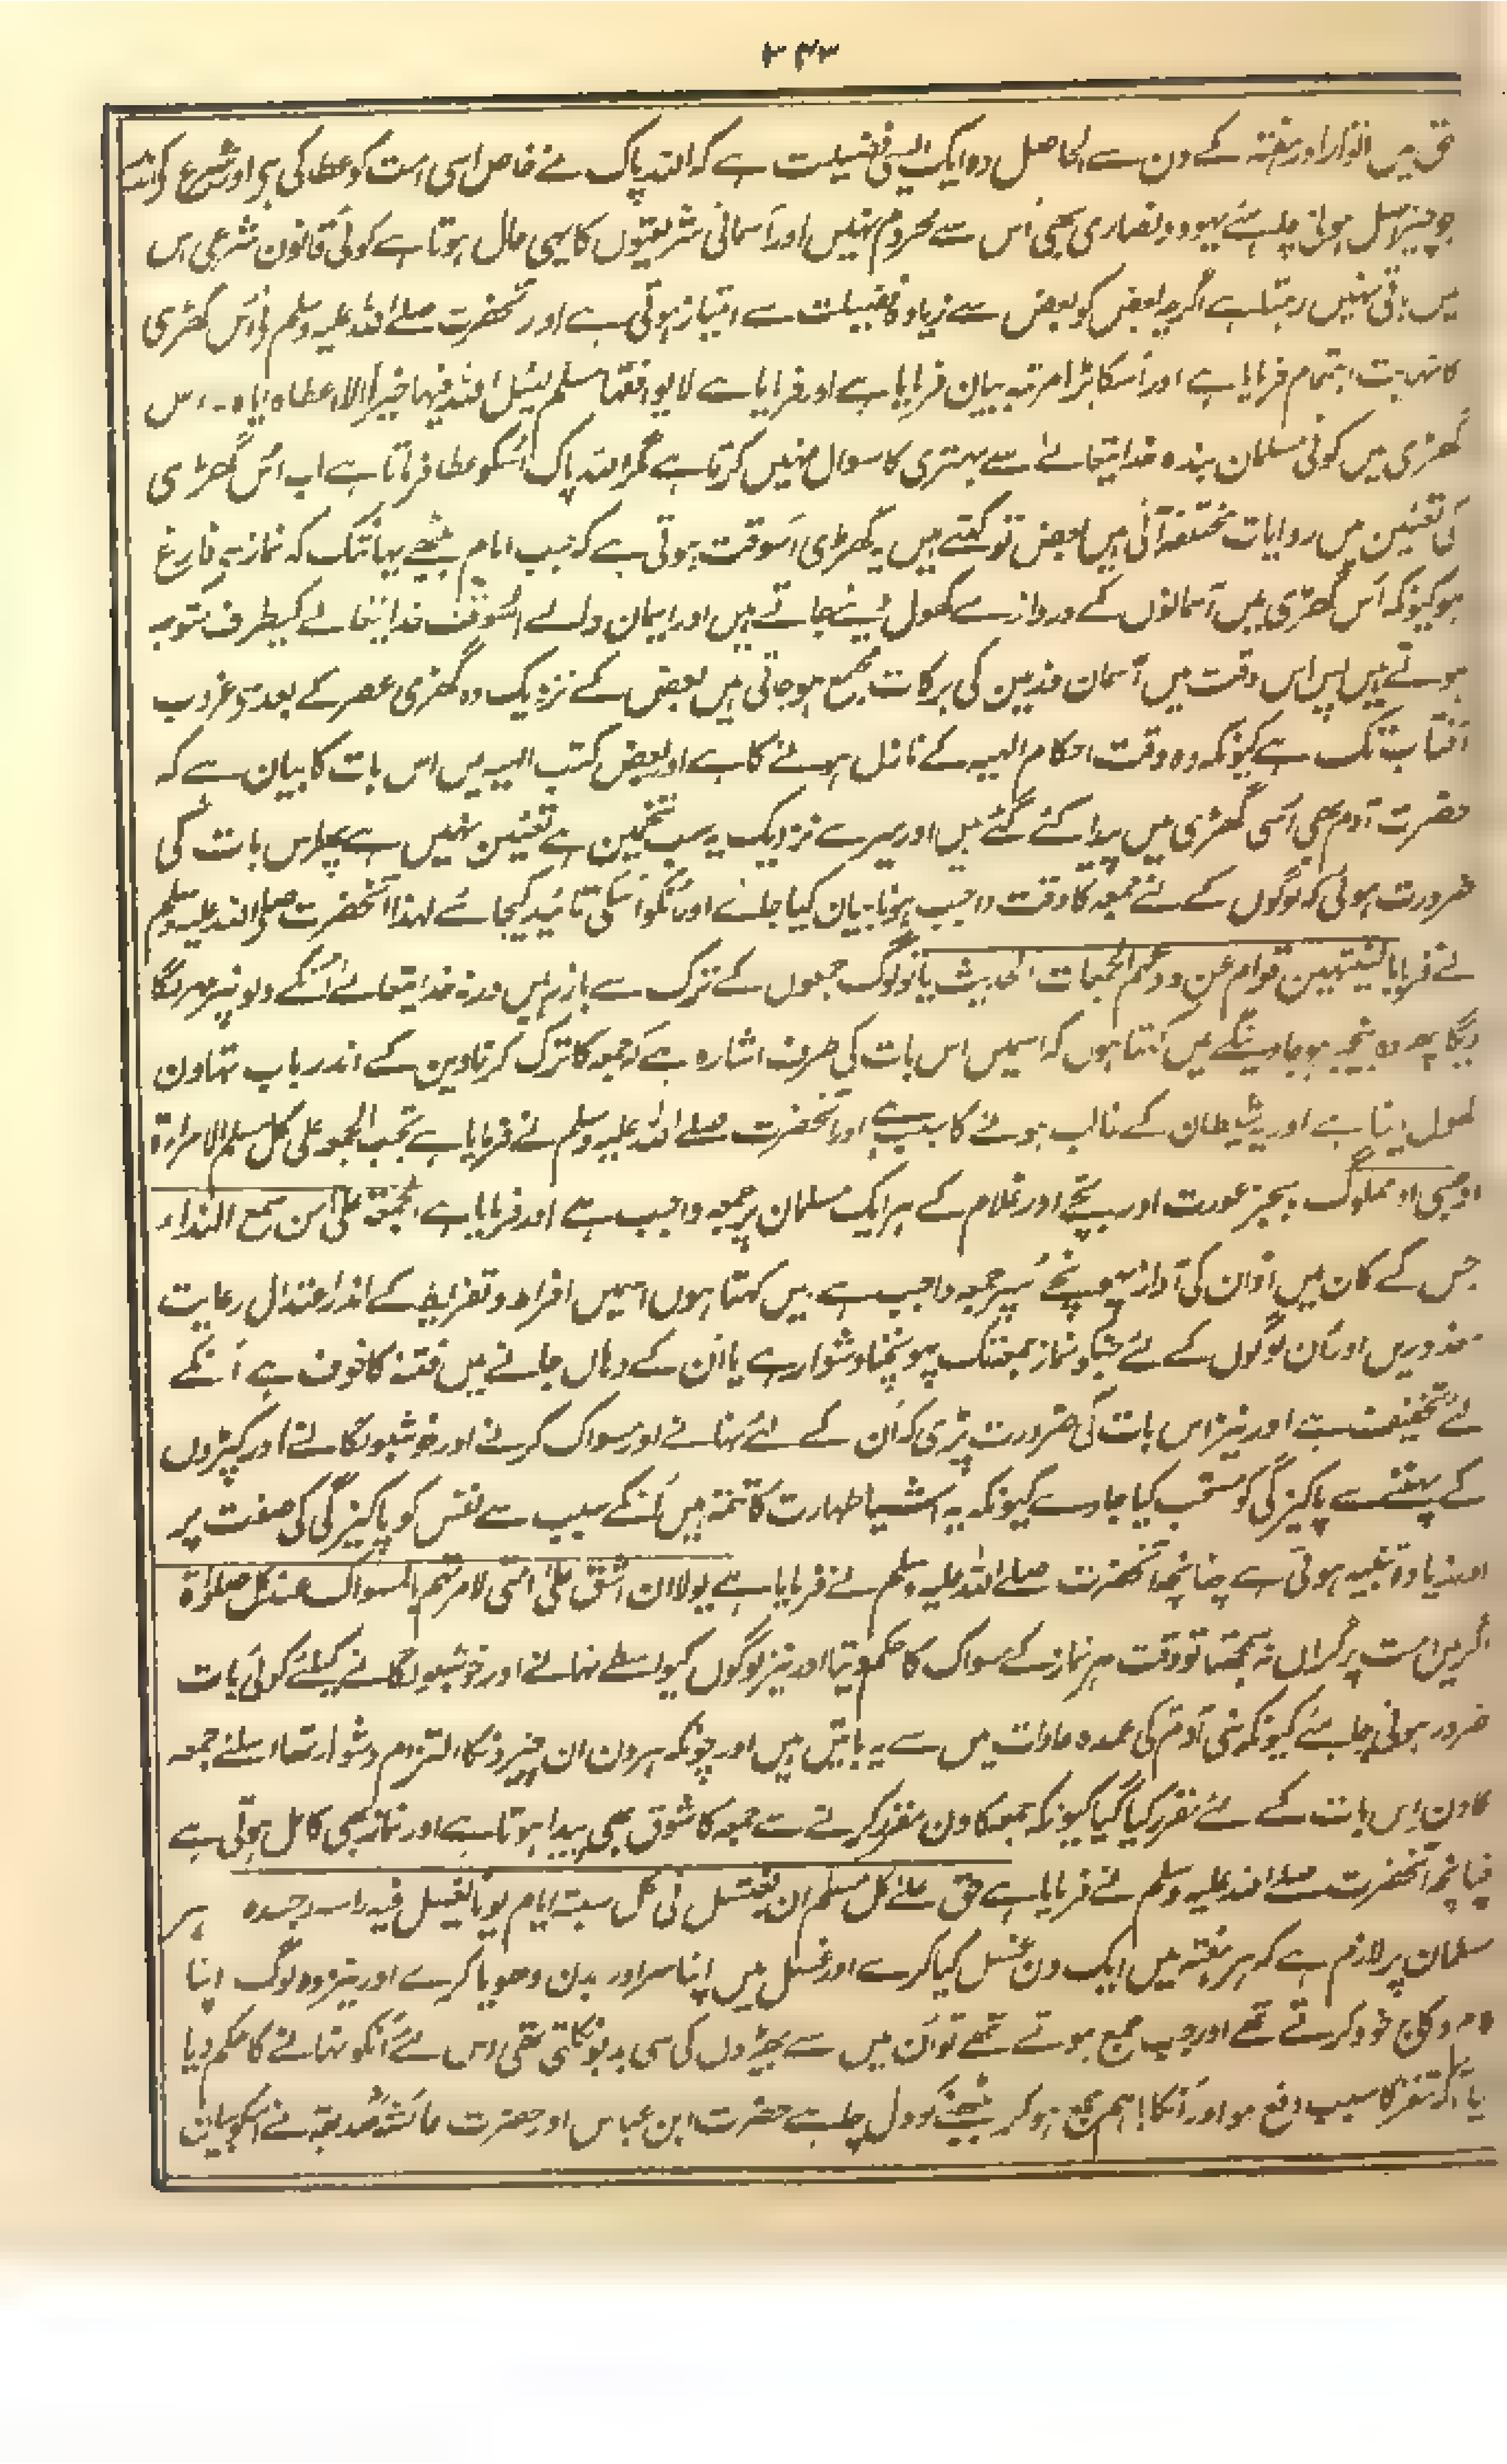 ۳۴۳
حق میں اتوار اور ہفتہ کے دن سے الحاصل وہ ایک ایسی فضیلت ہے کہ اللہ پاک نے خاص اسی امت کو عطا کی ہی اور شرع کو
جو چیز اصل ہونی چاہئے یہود و نصاری بھی اُس سے محروم نہیں اور آسمانی شریعتوں کا یہی حال ہوتا ہے کوئی قانون شرعی اس
میں باقی نہیں رہتا ہے اگرچہ بعض کو بعض سے زیادہ فضیلت سے امتیاز ہوتی ہے اور آنحضرت صلے اللہ علیہ وسلم نے اُس گھڑی
کا نہایت اہتمام فرمایا ہے اور اُسکا بڑا مرتبہ بیان فرمایا ہے اور فرمایا ہے لا یوافقہا مسلم یسئل اللہ فیہا خیرا الا اعطاہ ایاہ۔ اس
گھڑی میں کوئی مسلمان بندہ خدایتعالے سے بہتری کا سوال نہیں کرتا ہے مگر اللہ پاک اُسکو عطا فرماتا ہے اب اُس گھڑی
کی تعیین میں روایات مختلفہ آئی ہیں بعض تو کہتے ہیں یہ گھڑی اُسوقت ہوتی ہے کہ جب امام بیٹھے یہانتک کہ نماز سے فارغ
ہو کیونکہ اُس گھڑی میں آسمانوں کے دروازے کھول دیئے جاتے ہیں اور ایمان والے اُسوقت خدایتعالے کیطرف متوجہ
ہوتے ہیں پس اس وقت میں آسمان و زمین کی برکات جمع ہو جاتی ہیں بعض کے نزدیک وہ گھڑی عصر کے بعد سے غروب
آفتاب تک ہے کیونکہ وہ وقت احکام الہیہ کے نازل ہونے کا ہے اور بعض کتب الہیہ میں اس بات کا بیان ہے کہ
حضرت آدم بھی اُسی گھڑی میں پیدا کئے گئے ہیں اور میرے نزدیک یہ سب تخمین ہے تعیین نہیں ہے پھر اس بات کی
ضرورت ہوئی کہ لوگوں کے لئے جمعہ کا وقت واجب ہونا بیان کیا جائے اور اُنکو اُسکی تائید کیجائے لہذا آنحضرت صلی اللہ علیہ وسلم
نے فرمایا لینتہین قوام عن ودعہم الجمعات الحدیث یا تو لوگ جمعوں کے ترک سے باز رہیں ورنہ خدایتعالے اُنکے دلونپر مہر لگا
دیگا پھر وہ بیخبر ہو جاوینگے میں کہتا ہوں کہ اسمیں اس بات کی طرف اشارہ ہے کہ جمعہ کا ترک کرنا دین کے اندر باب تہاون
کھول دینا ہے اور یہ شیطان کے غالب ہونے کا سبب ہے اور آنحضرت صلے اللہ علیہ وسلم نے فرمایا ہے تجب الجمعۃ علی کل مسلم الا امراۃ
او صبی او مملوک بجز عورت اور بچے اور غلام کے ہر ایک مسلمان پر جمعہ واجب ہے اور فرمایا ہے الجمعۃ علی من سمع النداء
جس کے کان میں اذان کی آواز پہنچے اُسپر جمعہ واجب ہے میں کہتا ہوں اسمیں افراط و تفریط کے اندر اعتدال رعایت
معذورین اور اُن لوگوں کے لئے جنکو نماز جمعہ تک پہونچنا دشوار ہے یا اُن کے وہاں جانے میں فتنہ کا خوف ہے اُنکے
لئے تخفیف ہے اور نیز اس بات کی ضرورت پڑی کہ اُن کے لئے نہانے اور مسواک کرنے اور خوشبو لگانے اور کپڑوں
کے پہننے سے پاکیزگی کو مستحب کیا جاوے کیونکہ یہ اشیا طہارت کا تتمہ ہیں اُنکے سبب سے نفس کو پاکیزگی کی صفت پر
اور زیادہ تنبیہ ہوتی ہے چنانچہ آنحضرت صلے اللہ علیہ وسلم نے فرمایا ہے لولا ان اشق علی امتی لامرتہم بالسواک عند کل صلوٰۃ
اگر میں امت پر گراں نہ سمجھتا تو وقت ہر نماز کے مسواک کا حکم دیتا اور نیز لوگوں کیواسطے نہانے اور خوشبو لگانے کیلئے کوئی بات
ضرور ہونی چاہئے کیونکہ بنی آدم کی عمدہ عادات میں سے یہ باتیں ہیں اور چونکہ ہر دن ان چیزونکا التزام دشوار تھا اسلئے جمعہ
کا دن اِس بات کے لئے مقرر کیا گیا کیونکہ جمعہ کا دن مقرر کرنے سے جمعہ کا شوق بھی پیدا ہوتا ہے اور نماز بھی کامل ہوتی ہے
چنانچہ آنحضرت صلے اللہ علیہ وسلم نے فرمایا ہے حق علے کل مسلم ان یغتسل فی کل سبعۃ ایام یوما یغسل فیہ راسہ وجسدہ ہر
مسلمان پر لازم ہے کہ ہر ہفتہ میں ایک دن غسل کیا کرے اور غسل میں اپنا سر اور بدن دھویا کرے اور نیز وہ لوگ اپنا
کام و کاج خود کرتے تھے اور جب جمع ہوتے تھے تو اُن میں سے بھیڑوں کی سی بدبو نکلتی تھی اس لئے اُنکو نہانے کا حکم دیا
گیا تاکہ تنفر کا سبب دفع ہو اور اُنکا باہم جمع ہو کر بیٹھنے کو دل چاہے حضرت ابن عباس اور حضرت عائشہ صدیقہ نے اسکو بیان